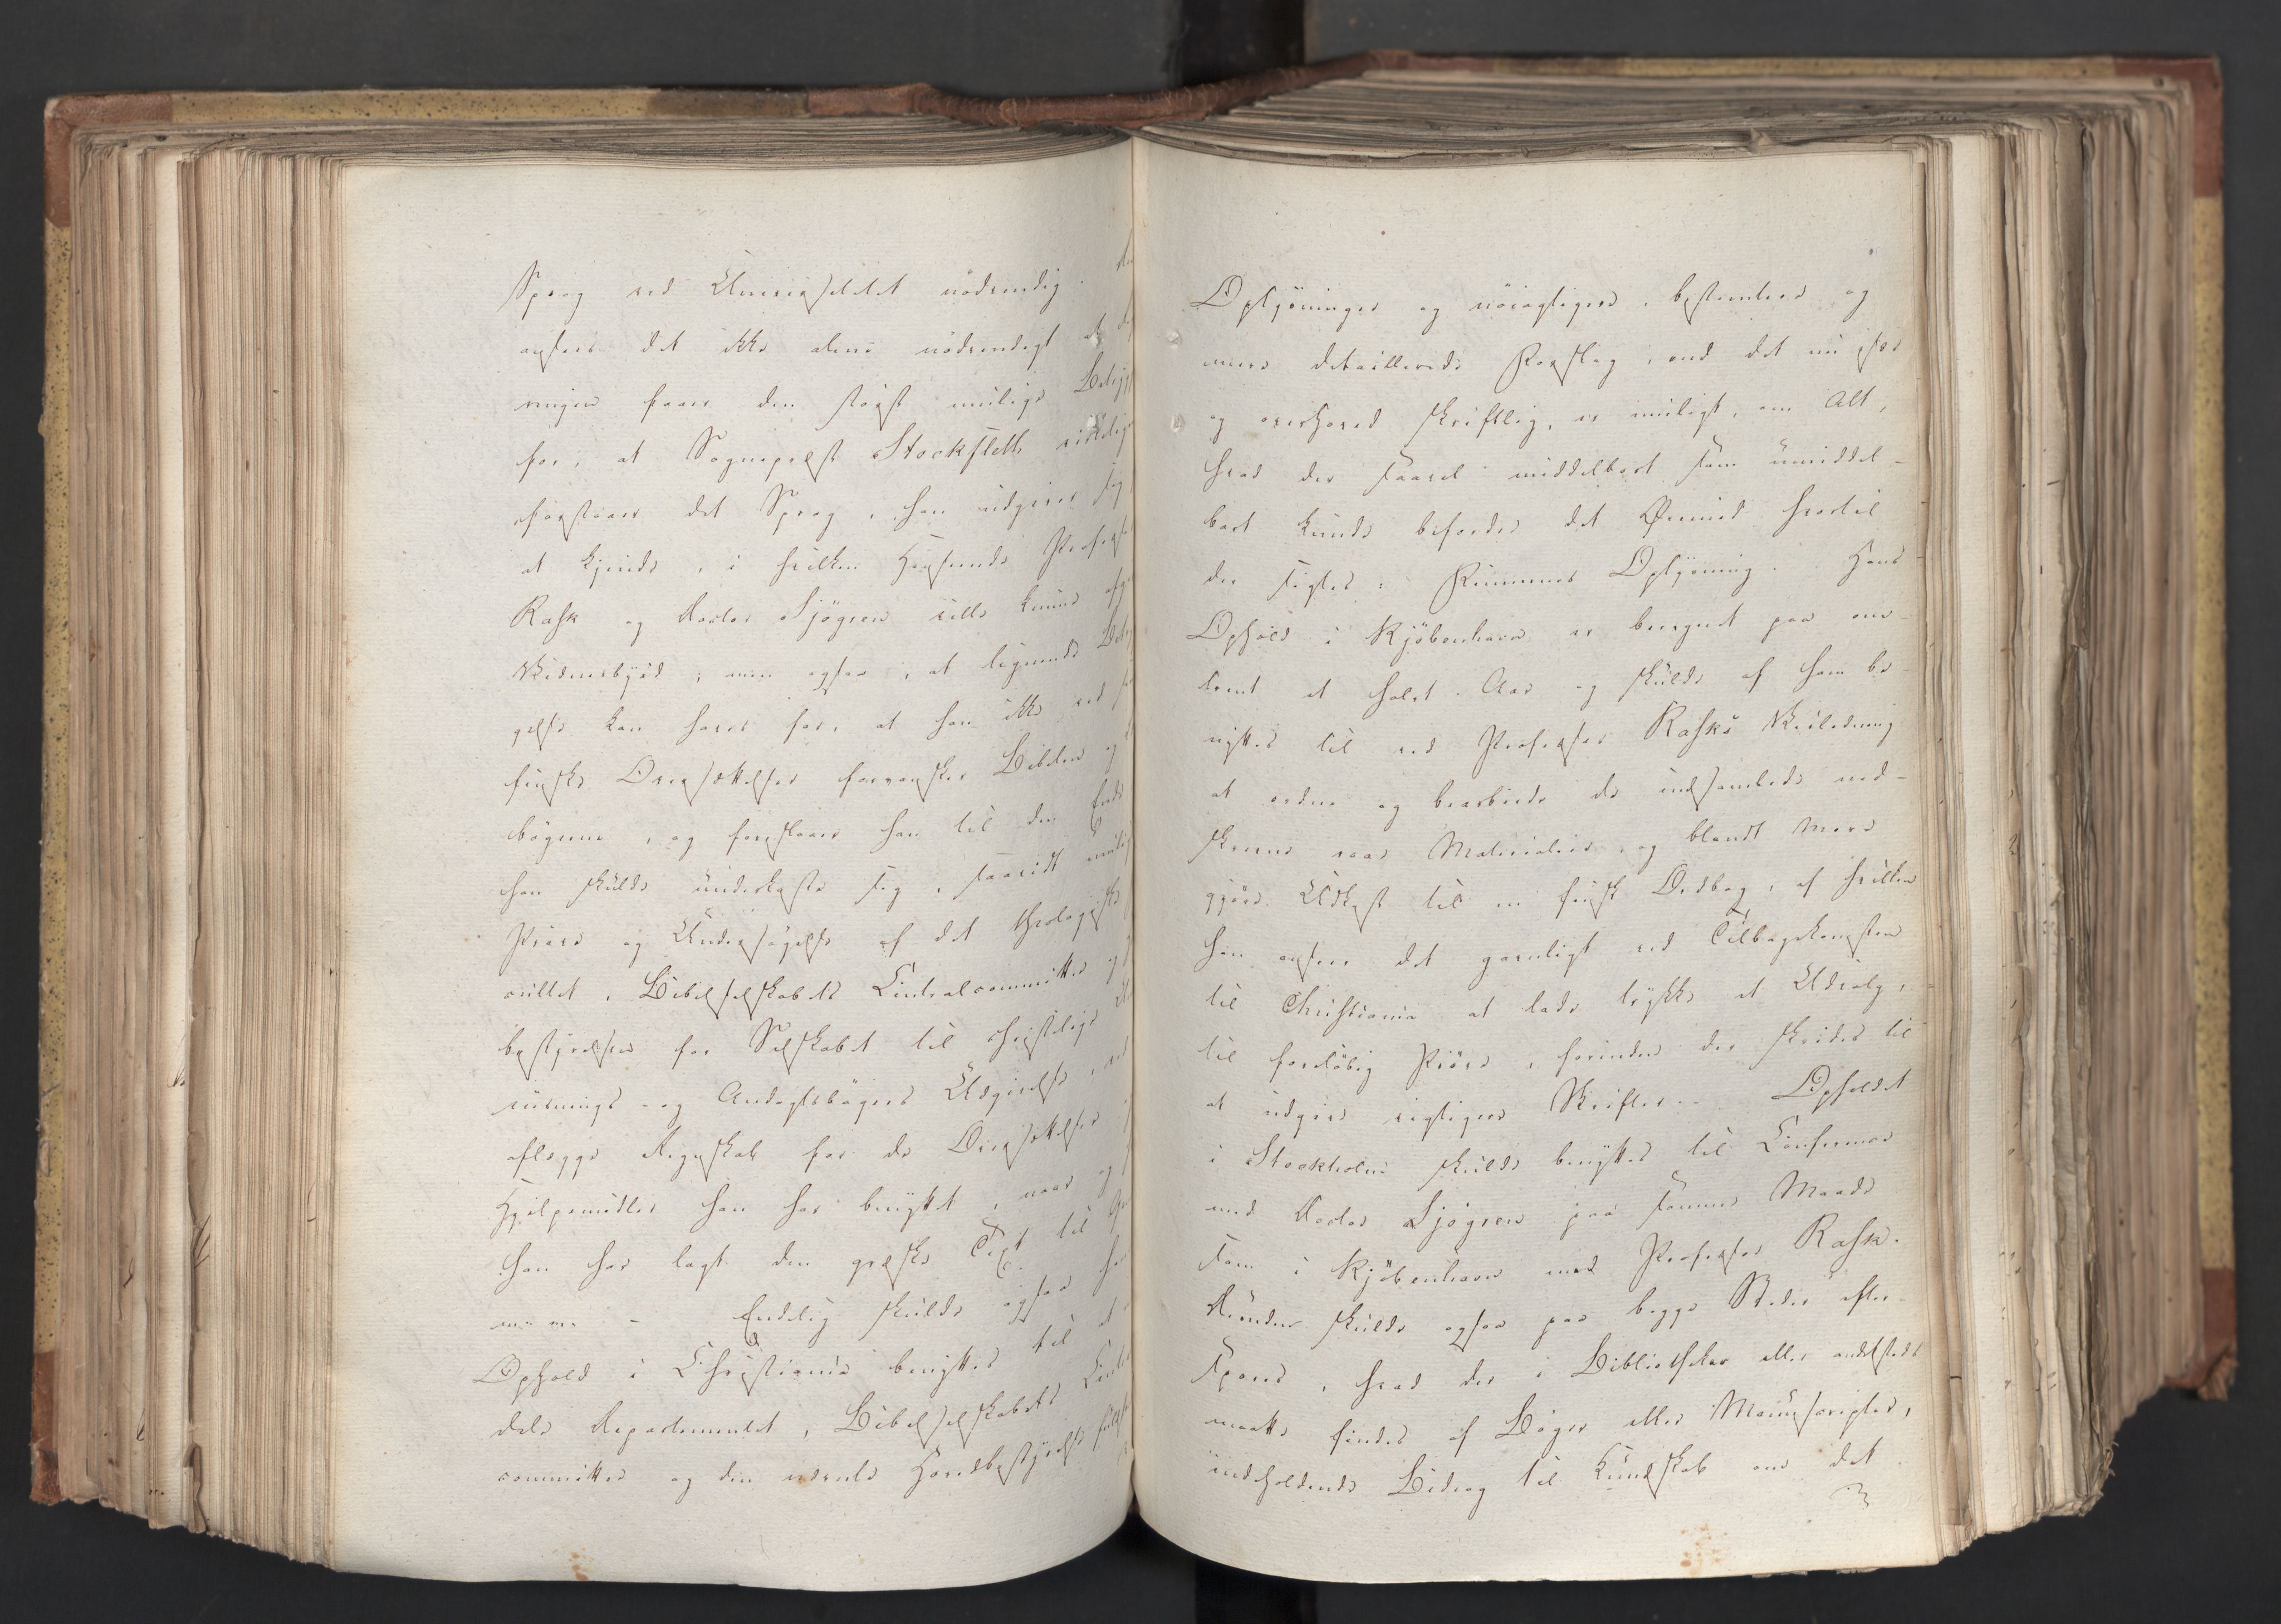 Sprog ved Universitetet nödvendig.
ansees det ikke alene nödvendigt at
ringen faaer den störst mulige
for, at Sogneprest Stockfleth virkelig
forstaaer det Sprog, han udgiver sig
at kjende, i hvilken Henseende
Rask og Doctor Sjögren ville kunne
Vidnesbyrd; men ogsaa, at lignende
gelse kan haves for, at han ikke ved
finske Oversættelser forvansker Bibelen og
bögerne, og foreslaaer han til den Ende
han skulde underkaste sig, saavidt
Pröve og Undersögelse af det theologiske
cultet, Bibelselskabets Centralcommittee og
bestyrelsen for Selskabet til christelige
nings- og Andagtsbögers Udgivelse, ved
aflægge Regnskab for de Oversættelser
Hjelpemidler han har benyttet, naar og
han har lagt den græske Text til
Endelig skulde ogsaa
Ophold i Christiania benyttes til at
dele Departementet, Bibelselskabets
committee og den nævnte Hovedbestyrelse
Oplysninger og nöiagtigere, bestemtere og
mere detaillerede Forslag, end det nu
og overhoved skriftlig, er muligt, om Alt,
hvad der saavel middelbart som umiddel-
bart kunde befordre det Öiemed hvortil
der sigtes: Finnernes Oplysning. Hans
Ophold i Kjöbenhavn er beregnet paa om-
trent et halvt Aar og skulde af ham be-
nyttes til ved Professor Rasks Veiledning
at ordne og bearbeide de indsamlede ned-
skrevne raae Materialier, og blandt Mere
gjöre Udkast til en finsk Ordbog, af hvilken
han ansees det gavnligt ved Tilbagekomsten
til Christiania at lade trykke et Udvalg,
til foreløbig Pröve, forinden der skrides til
at udgive vigtigere Skrifter. Opholdet
i Stockholm skulde benyttes til Conferencer
med Doctor Sjögren paa samme Maade
som i Kjöbenhavn med Professor Rask.
skulde ogsaa paa begge Steder efter-
spores, hvad der i Bibliotheker eller andetsteds
maatte findes af Böger eller Manuscripter,
indeholdende Bidrag til Kundskab om det